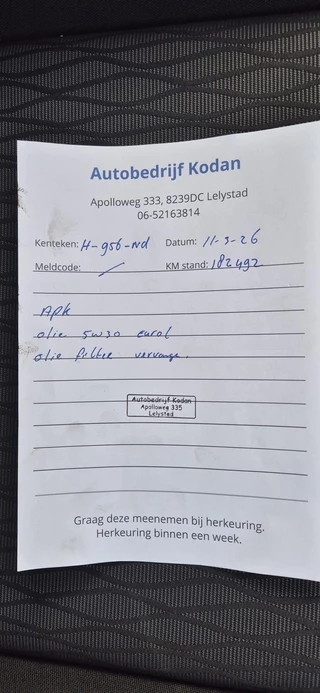 Autobedrijf Kodan
Apolloweg 333, 8239DC Lelystad
06-52163814
Kenteken: H-956-ND Datum: 11-3-26
Meldcode: / KM stand: 182492
APK
olie 5W30 eurol
olie filter vervange.
Autobedrijf Kodan
Apolloweg 335
Lelystad
Graag deze meenemen bij herkeuring.
Herkeuring binnen een week.